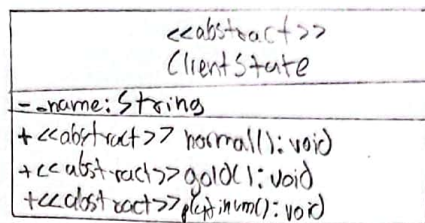 <<abstract>>
ClientState
- _name: String
+ <<abstract>> normal(): void
+ <<abstract>> gold(): void
+ <<abstract>> platinum(): void